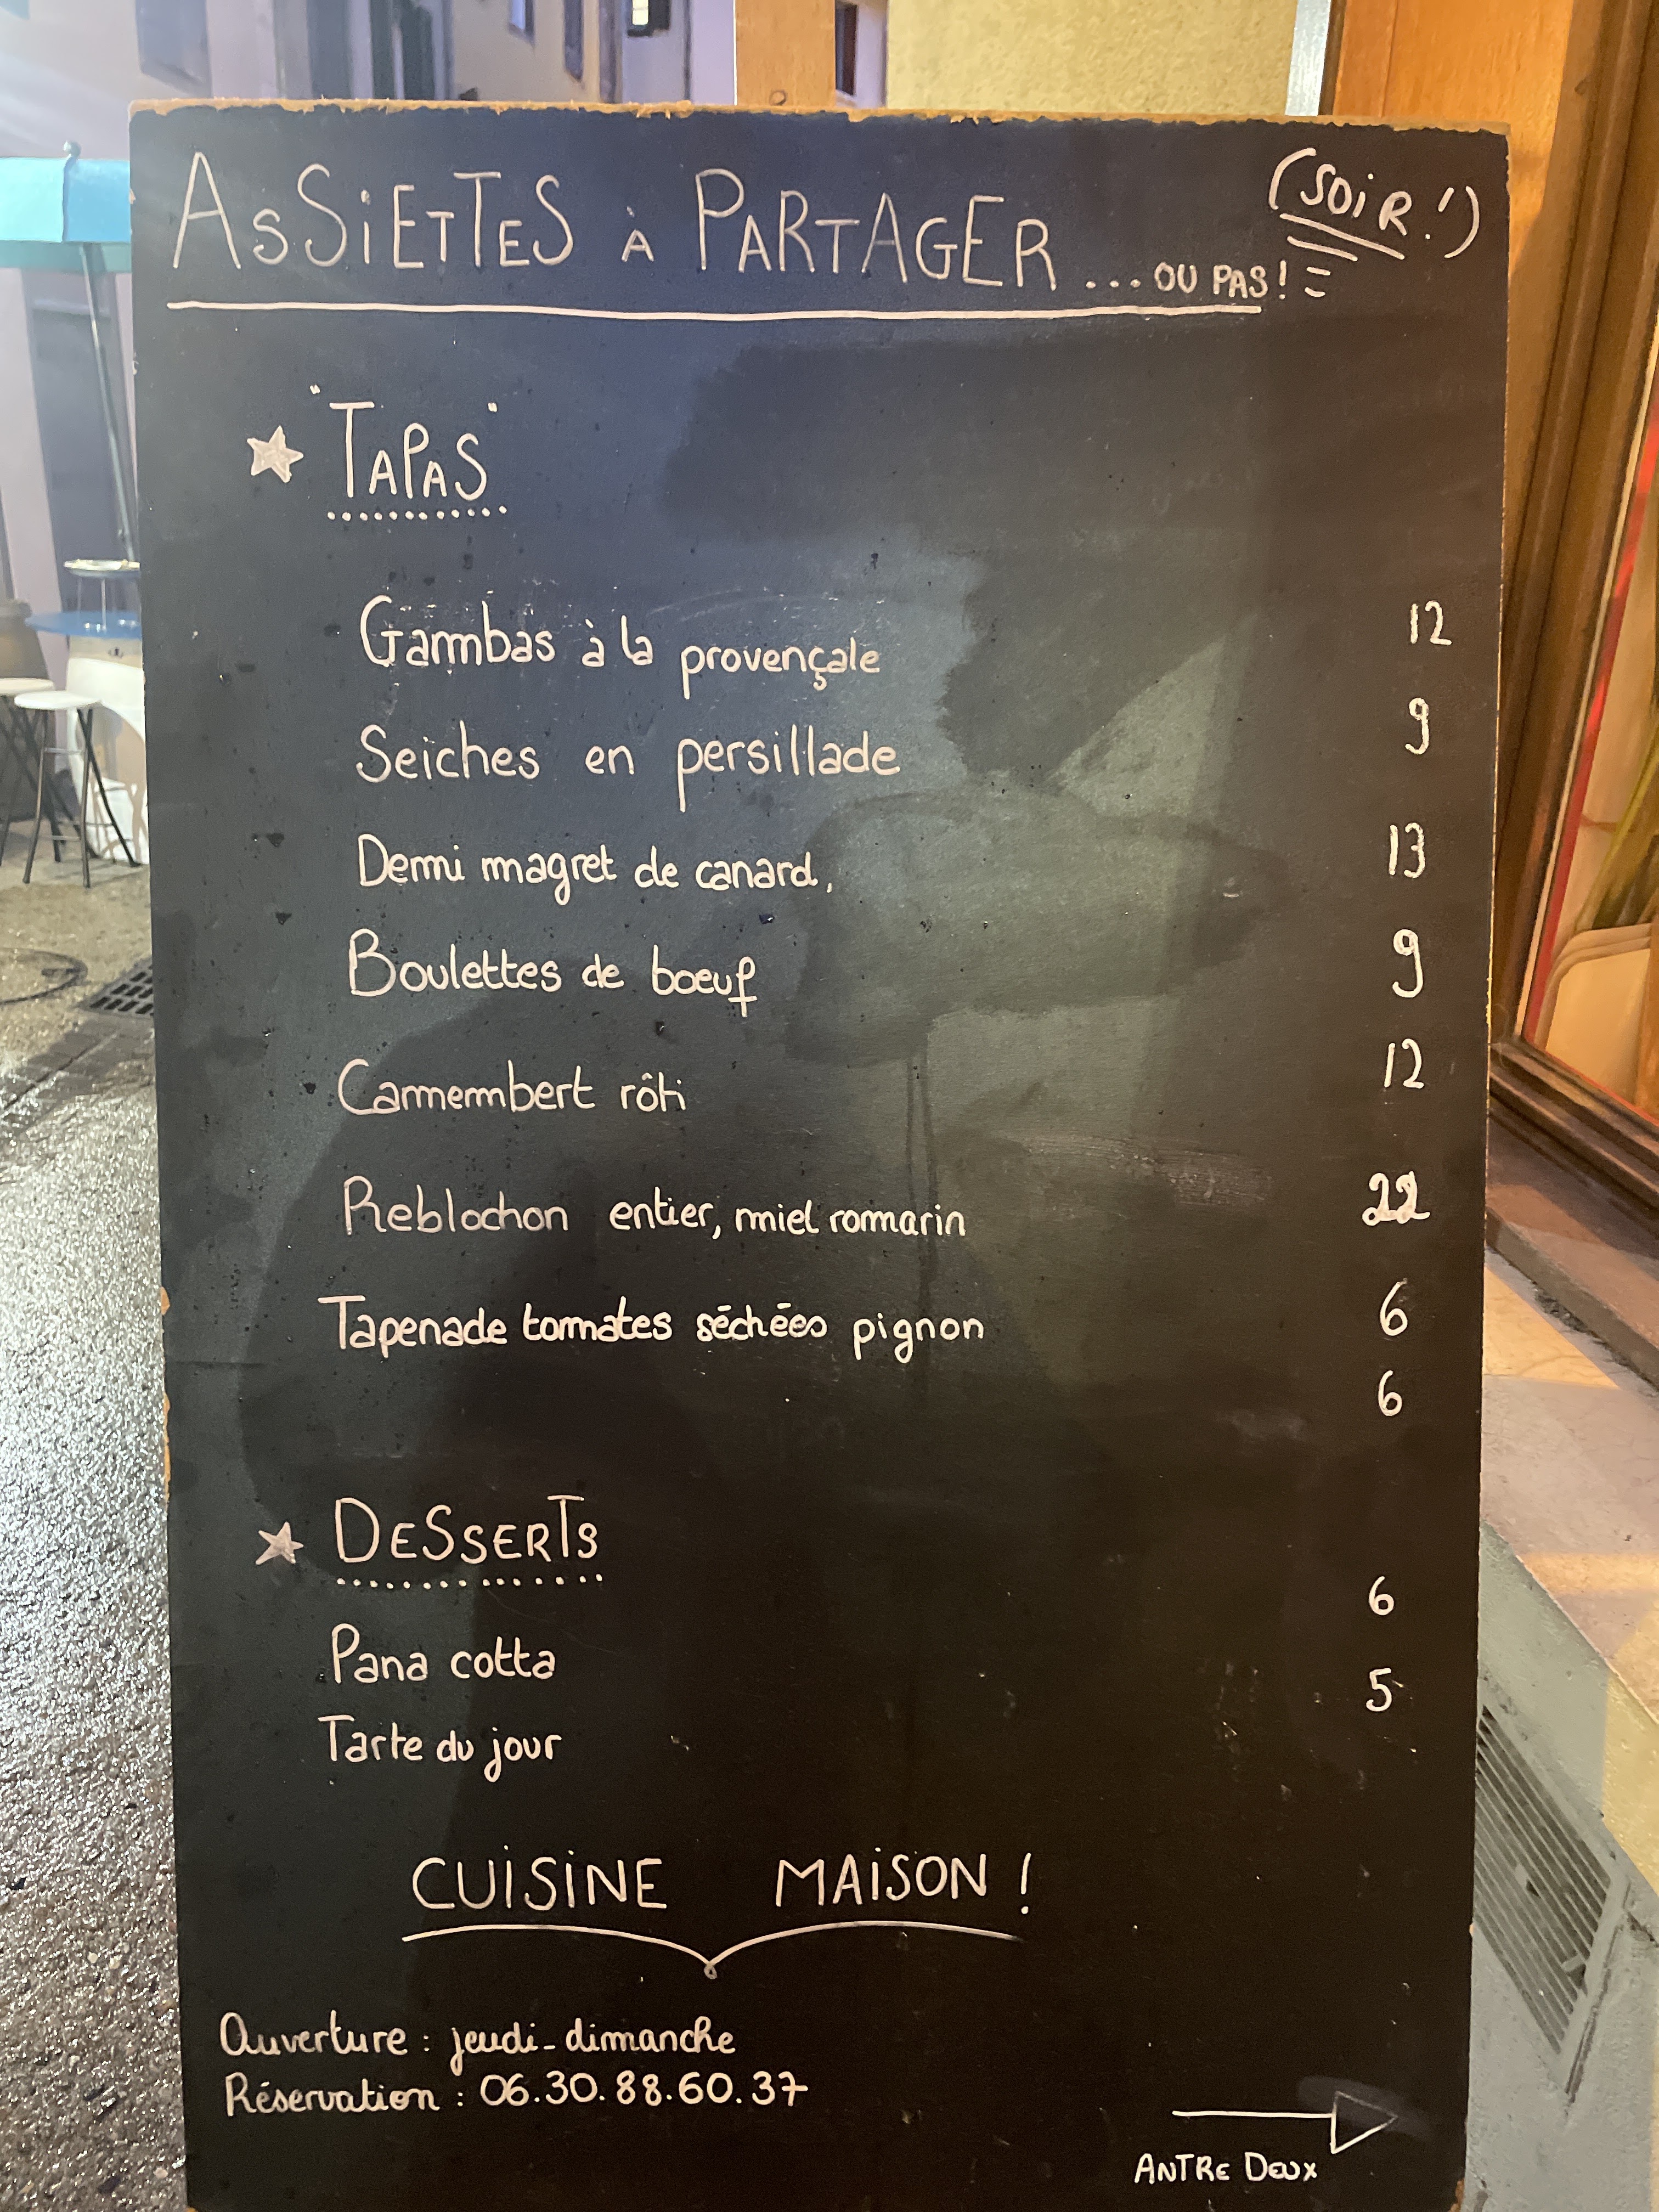 ASSiETTES À PARTAGER ... OU PAS! (SOiR!)
"TAPAS"
Gambas à la provençale 12
Seiches en persillade 9
Demi magret de canard, 13
Boulettes de boeuf 9
Camembert rôti 12
Reblochon entier, miel romarin 22
Tapenade tomates séchées pignon 6
6
DESSERTS
6
Pana cotta
5
Tarte du jour
CUiSiNE MAiSON !
Ouverture : jeudi-dimanche
Réservation : 06.30.88.60.37
ANTRE DEUX